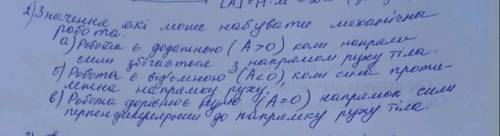 [A] = H · м =
2) Значення які може набувати механічна
робота.
а) Робота є додатньою (A>0) коли напрям
сили збігається з напрямом руху тіла.
б) Робота є від'ємною (A<0) коли сила проти-
лежна напрямку руху.
в) Робота дорівнює нулю (A=0) напрямок сили
перпендикулярний до напрямку руху тіла.